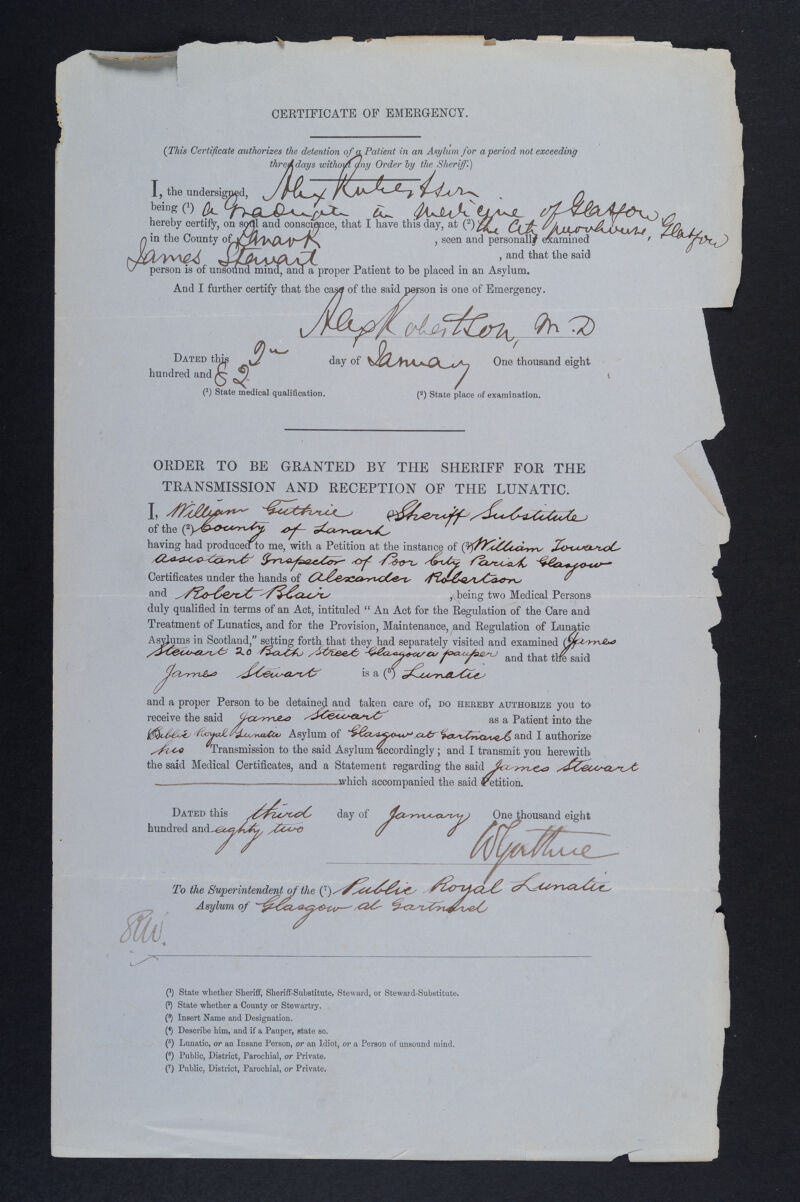 CERTIFICATE OF EMERGENCY.
(This Certificate authorizes the detention of a Patient in an Asylum for a period not exceeding
three days without any Order by the Sheriff.)
I, the undersigned, Alex Robertson
being (1) a Graduate in Medicine of Glasgow
hereby certify, on soul and conscience, that I have this day, at (2) the City Poorhouse, Glasgow
in the County of Lanark , seen and personally examined
James Stewart , and that the said
person is of unsound mind, and a proper Patient to be placed in an Asylum.
And I further certify that the case of the said person is one of Emergency.
Alex Robertson, M.D
DATED this 2nd day of January One thousand eight
hundred and 82
(1) State medical qualification. (2) State place of examination.
ORDER TO BE GRANTED BY THE SHERIFF FOR THE
TRANSMISSION AND RECEPTION OF THE LUNATIC.
I, William Guthrie Sheriff Substitute
of the (2) County of Lanark
having had produced to me, with a Petition at the instance of (3) William Toward
Assistant Inspector of Poor City Parish Glasgow
Certificates under the hands of Alexander Robertson
and Robert Blair , being two Medical Persons
duly qualified in terms of an Act, intituled “ An Act for the Regulation of the Care and
Treatment of Lunatics, and for the Provision, Maintenance, and Regulation of Lunatic
Asylums in Scotland,” setting forth that they had separately visited and examined (4) James
Stewart 20 Bath Street Glasgow a pauper and that the said
James Stewart is a (5) Lunatic
and a proper Person to be detained and taken care of, DO HEREBY AUTHORIZE you to
receive the said James Stewart as a Patient into the
(6) Public Royal Lunatic Asylum of Glasgow at Gartnavel and I authorize
his Transmission to the said Asylum accordingly; and I transmit you herewith
the said Medical Certificates, and a Statement regarding the said James Stewart
which accompanied the said Petition.
DATED this third day of January One thousand eight
hundred and eighty two
W Guthrie
To the Superintendent of the (7) Public Royal Lunatic
Asylum of Glasgow at Gartnavel
(1) State whether Sheriff, Sheriff-Substitute, Steward, or Steward-Substitute.
(2) State whether a County or Stewartry.
(3) Insert Name and Designation.
(4) Describe him, and if a Pauper, state so.
(5) Lunatic, or an Insane Person, or an Idiot, or a Person of unsound mind.
(6) Public, District, Parochial, or Private.
(7) Public, District, Parochial, or Private.